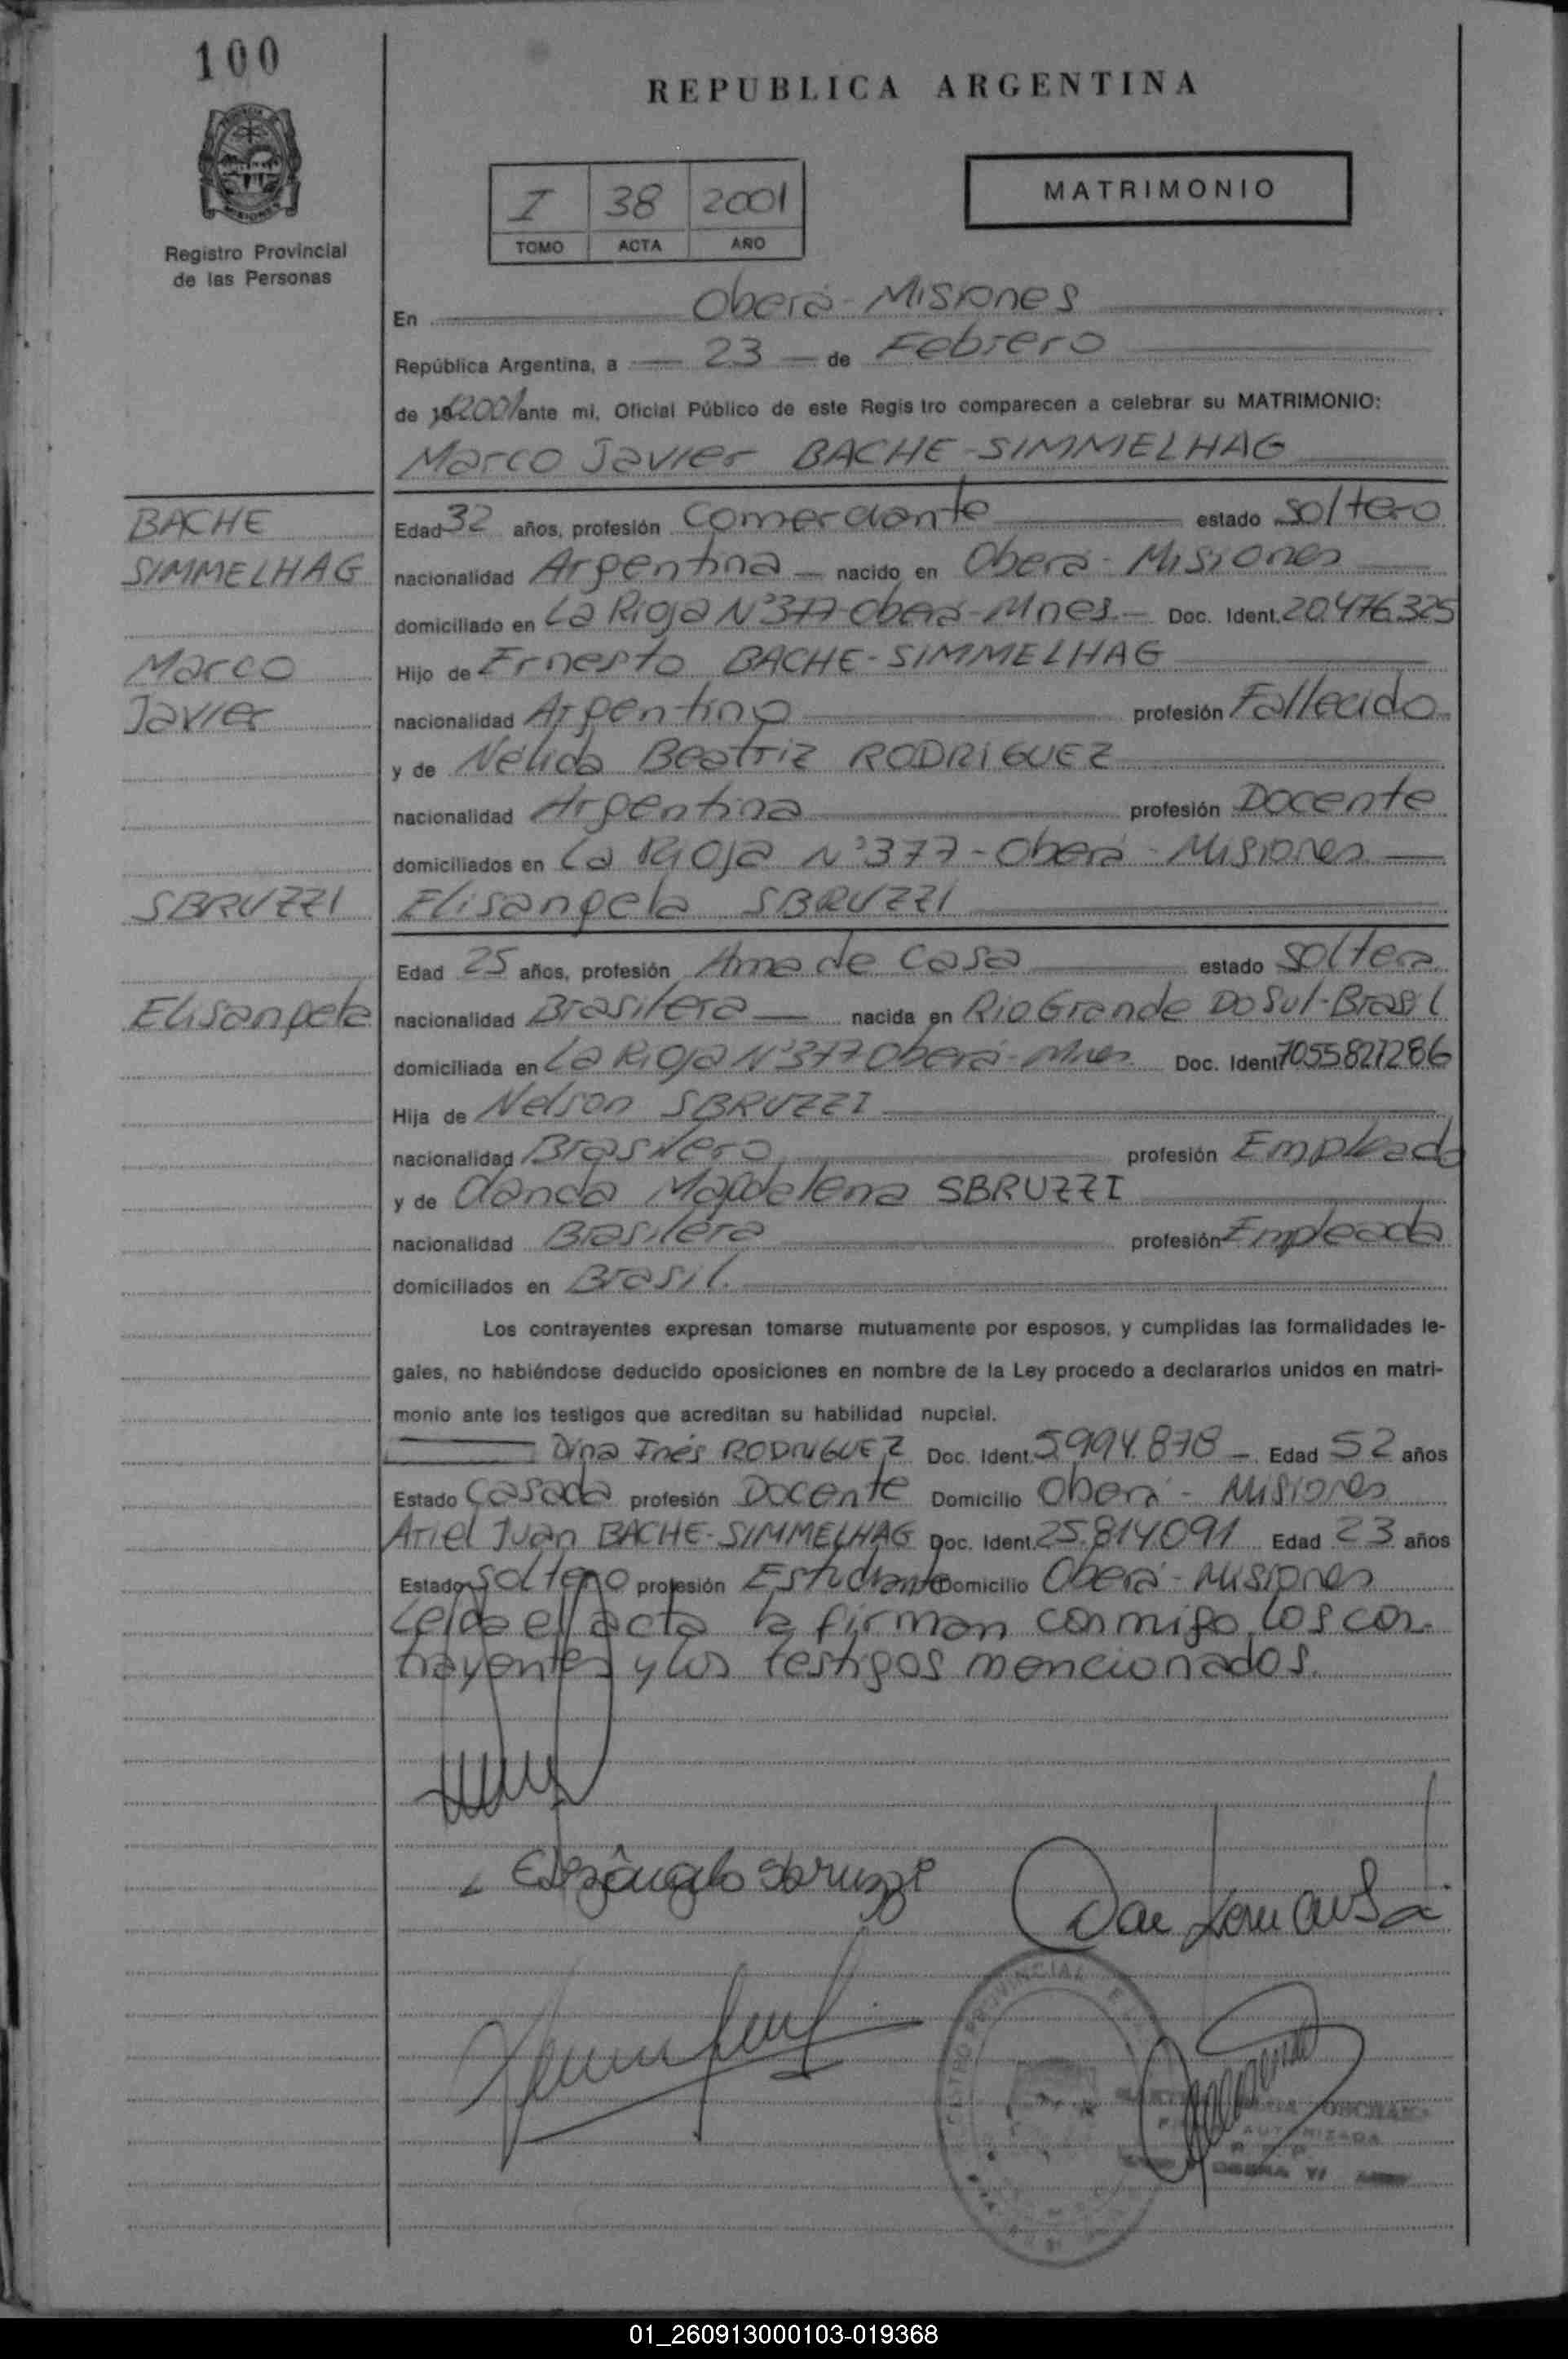 100
REPUBLICA ARGENTINA
Registro Provincial
de las Personas
I 38 2001
TOMO ACTA AÑO
MATRIMONIO
En Oberá - Misiones
República Argentina, a 23 de Febrero
de 19 2001 ante mi, Oficial Público de este Regis tro comparecen a celebrar su MATRIMONIO:
Marco Javier BACHE-SIMMELHAG
BACHE
SIMMELHAG
Marco
Javier
Edad 32 años, profesión Comerciante estado Soltero
nacionalidad Argentina nacido en Oberá - Misiones
domiciliado en La Rioja Nº 377 Oberá - Mnes. Doc. Ident. 20.476.325
Hijo de Ernesto BACHE-SIMMELHAG
nacionalidad Argentino profesión Fallecido
y de Nélida Beatriz RODRIGUEZ
nacionalidad Argentina profesión Docente
domiciliados en La Rioja Nº 377 - Oberá - Misiones
SBRUZZI
Elisangela
Elisangela SBRUZZI
Edad 25 años, profesión Ama de Casa estado Soltera
nacionalidad Brasilera nacida en Rio Grande Do Sul - Brasil
domiciliada en La Rioja Nº 377 Oberá - Mnes Doc. Ident 7055827286
Hija de Nelson SBRUZZI
nacionalidad Brasilero profesión Empleado
y de Magdelena SBRUZZI
nacionalidad Brasilera profesión Empleada
domiciliados en Brasil.
Los contrayentes expresan tomarse mutuamente por esposos, y cumplidas las formalidades le-
gales, no habiéndose deducido oposiciones en nombre de la Ley procedo a declararlos unidos en matri-
monio ante los testigos que acreditan su habilidad nupcial.
Dina Inés RODRIGUEZ Doc. Ident. 5.994.878 Edad 52 años
Estado Casada profesión Docente Domicilio Oberá - Misiones
Ariel Juan BACHE-SIMMELHAG Doc. Ident. 25.814.091 Edad 23 años
Estado Soltero profesión Estudiante Domicilio Oberá - Misiones
Leída el acta la firman conmigo los con-
trayentes y los testigos mencionados.
Elisângela Sbruzzi
PROVINCIAL
AUTORIZADA
01_260913000103-019368